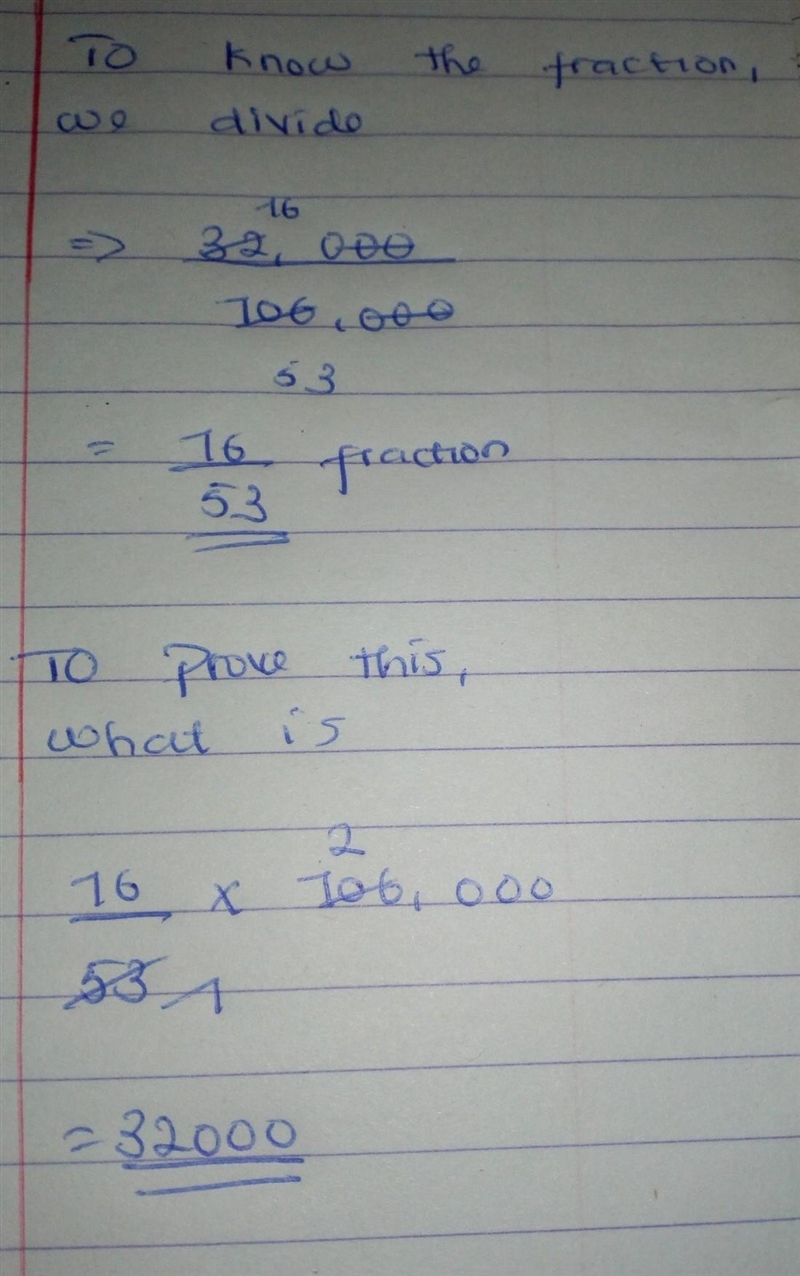 To know the fraction,
we divide
16
=> 32,000
106,000
53
= 16 fraction
53
To Prove this,
what is
2
16 x 106,000
53 1
= 32000